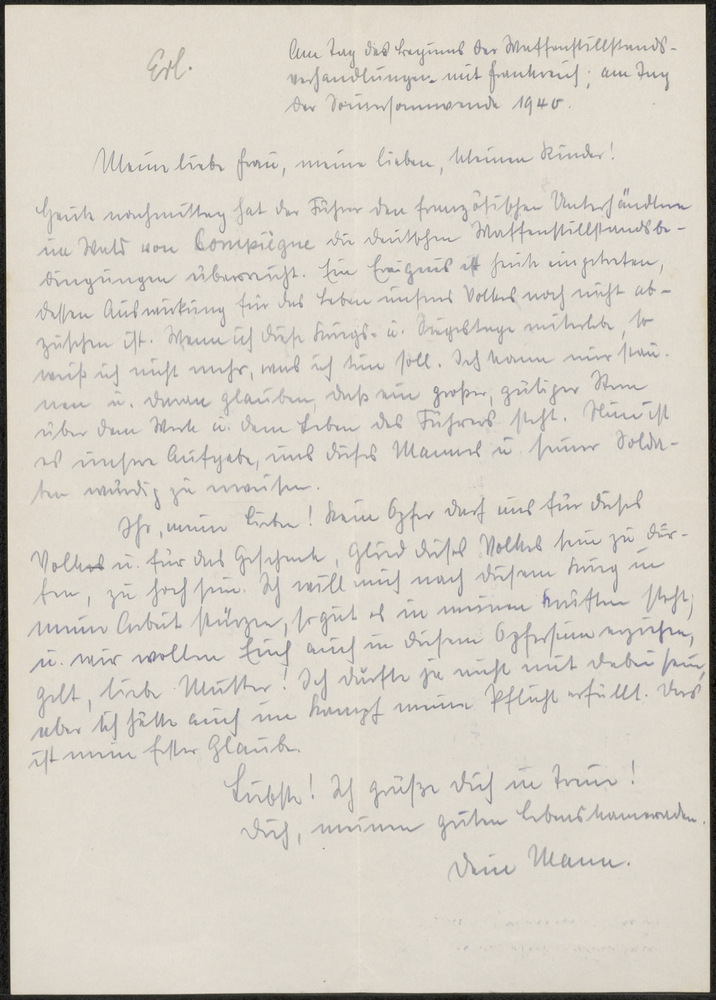 Erl.
Am Tag des Beginns der Waffenstillstands-
verhandlungen mit Frankreich; am Tag
der Sommersonnwende 1940.
Meine liebe Frau, meine lieben, kleinen Kinder!
Heute nachmittag hat der Führer den französischen Unterhändlern
im Wald von Compiègne die deutschen Waffenstillstandsbe-
dingungen überreicht. Ein Ereignis ist heute eingetreten,
dessen Auswirkung für das Leben unseres Volkes noch nicht ab-
zusehen ist. Wenn ich diese Kriegs- u. Siegestage miterlebe, so
weiß ich nicht mehr, was ich tun soll. Ich kann nur stau-
nen u. daran glauben, daß ein großer, gütiger Stern
über dem Werk u. dem Leben des Führers steht. Nun ist
es unsere Aufgabe, uns dieses Mannes u. seiner Solda-
ten würdig zu erweisen.
Ihr, meine Lieben! Kein Opfer darf uns für dieses
Volk u. für das Geschenk, Glied dieses Volkes sein zu dür-
fen, zu hoch sein. Ich will mich nach diesem Krieg in
meine Arbeit stürzen, so gut es in meinen Kräften steht;
u. wir wollen Euch auch in diesem Opfersinn erziehen,
gelt, liebe Mutter! Ich durfte ja nicht mit dabei sein,
aber ich hätte auch im Kampf meine Pflicht erfüllt. Das
ist mein fester Glaube.
Liebste! Ich grüße Dich in Treue!
Dich, meinen guten Lebenskameraden.
Dein Mann.